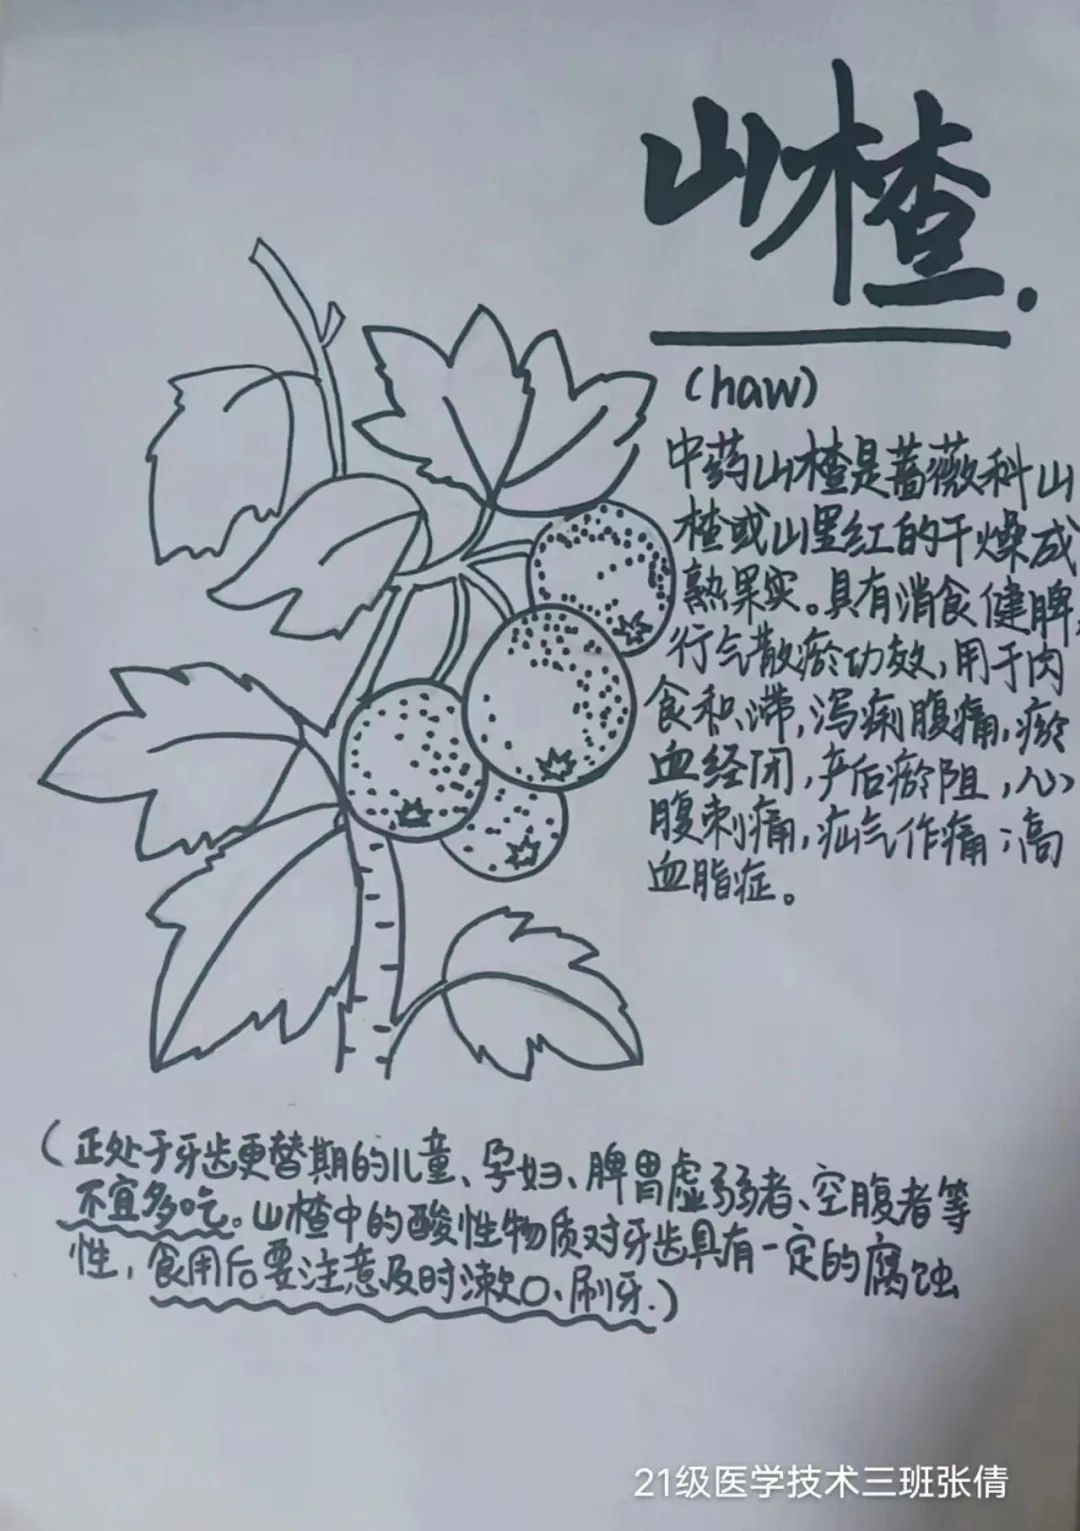 山楂.
(haw)
中药山楂是蔷薇科山
楂或山里红的干燥成
熟果实。具有消食健脾,
行气散瘀功效,用于肉
食积滞,泻痢腹痛,瘀
血经闭,产后瘀阻,心
腹刺痛,疝气作痛;高
血脂症。
(正处于牙齿更替期的儿童、孕妇、脾胃虚弱者、空腹者等
不宜多吃。山楂中的酸性物质对牙齿具有一定的腐蚀
性,食用后要注意及时漱口、刷牙.)
21级医学技术三班张倩